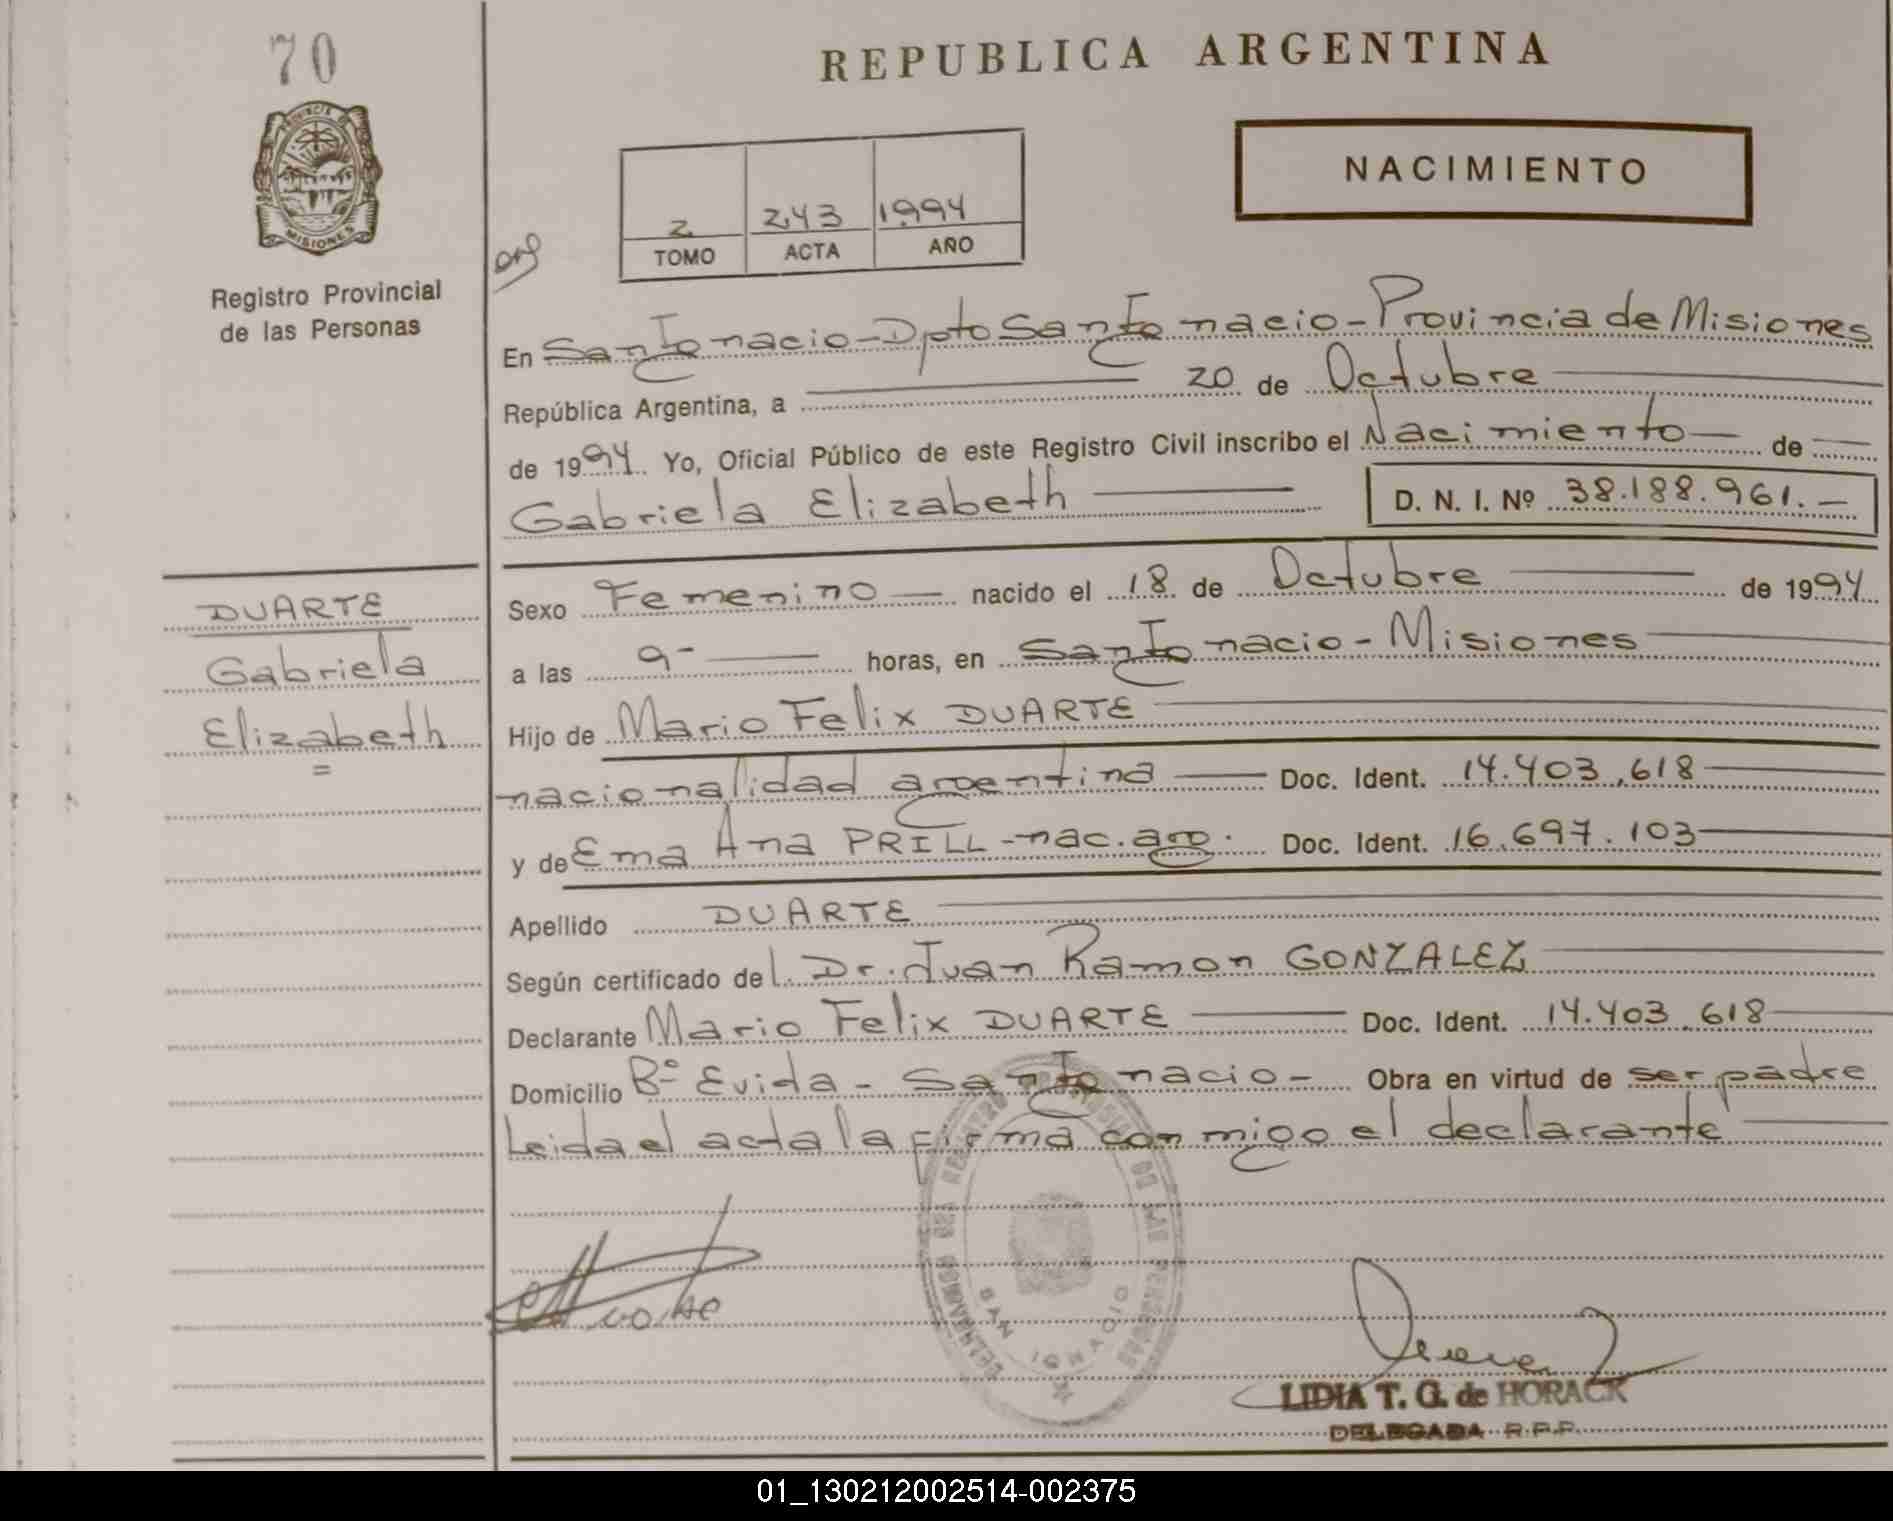 70
REPUBLICA ARGENTINA
PROVINCIA DE
MISIONES
Registro Provincial
de las Personas
NACIMIENTO
2 243 1994
TOMO ACTA AÑO
En San Ignacio - Dpto San Ignacio - Provincia de Misiones
República Argentina, a 20 de Octubre
de 1994 Yo, Oficial Público de este Registro Civil inscribo el Nacimiento de
Gabriela Elizabeth D. N. I. Nº 38.188.961.-
DUARTE
Gabriela
Elizabeth
=
Sexo Femenino nacido el 18 de Octubre de 1994
a las 9- horas, en San Ignacio - Misiones
Hijo de Mario Felix DUARTE
nacionalidad argentina Doc. Ident. 14.403.618
y de Ema Ana PRILL - nac. arg. Doc. Ident. 16.697.103
Apellido DUARTE
Según certificado del Dr. Juan Ramon GONZALEZ
Declarante Mario Felix DUARTE Doc. Ident. 14.403.618
Domicilio Bº Evida - San Ignacio - Obra en virtud de ser padre
Leida el acta la firma conmigo el declarante
SAN IGNACIO
LIDIA T. G. de HORACK
DELEGADA R.P.P.
01_130212002514-002375